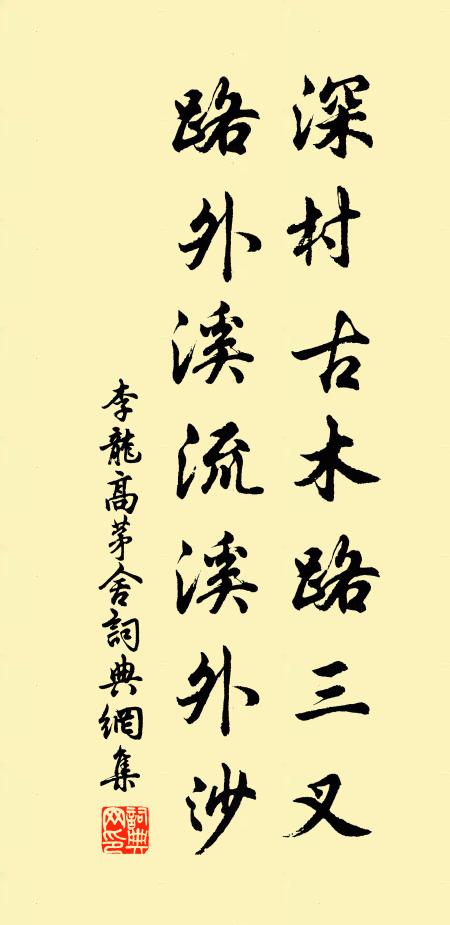 深村古木路三叉
路外溪流溪外沙
李龍高茅舍詞典網集
詞典网印